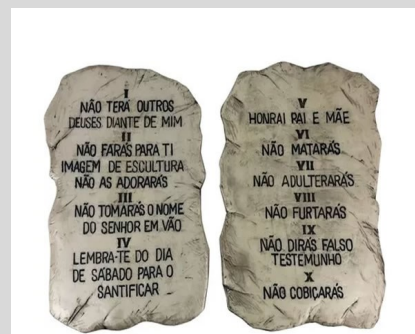 I
NÃO TERÁ OUTROS
DEUSES DIANTE DE MIM
II
NÃO FARÁS PARA TI
IMAGEM DE ESCULTURA
NÃO AS ADORARÁS
III
NÃO TOMARÁS O NOME
DO SENHOR EM VÃO
IV
LEMBRA-TE DO DIA
DE SÁBADO PARA O
SANTIFICAR
V
HONRAI PAI E MÃE
VI
NÃO MATARÁS
VII
NÃO ADULTERARÁS
VIII
NÃO FURTARÁS
IX
NÃO DIRÁS FALSO
TESTEMUNHO
X
NÃO COBIÇARÁS